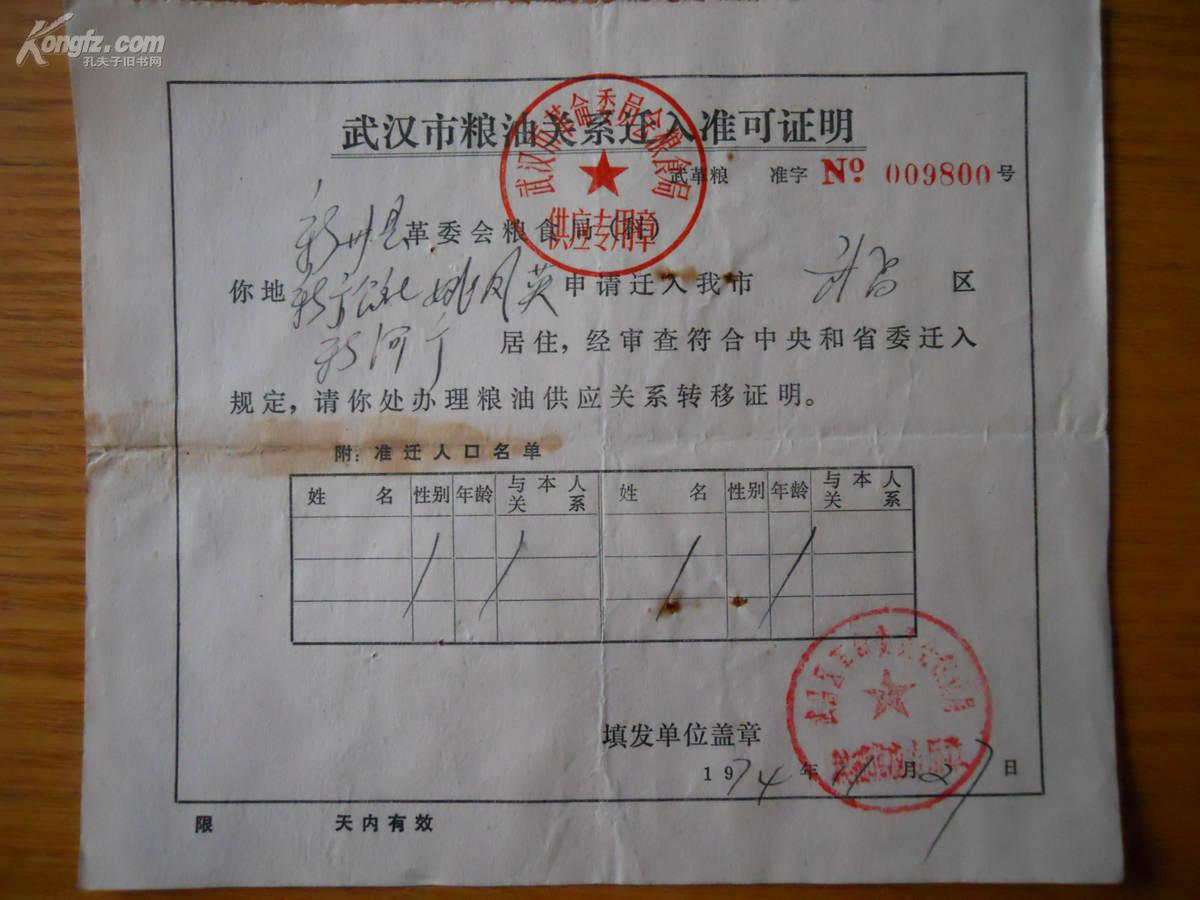 Kongfz.com
孔夫子旧书网
武汉市粮油关系迁入准可证明
武汉市革命委员会粮食局
供应专用章
武革粮 准字 No 009800 号
新州县革委会粮食局(科)
你地 姚凤英申请迁入我市 武昌 区
新河 居住，经审查符合中央和省委迁入
规定，请你处办理粮油供应关系转移证明。
附：准迁人口名单
姓名 性别 年龄 与本人关系 姓名 性别 年龄 与本人关系
填发单位盖章
1974年11月27日
限 天内有效